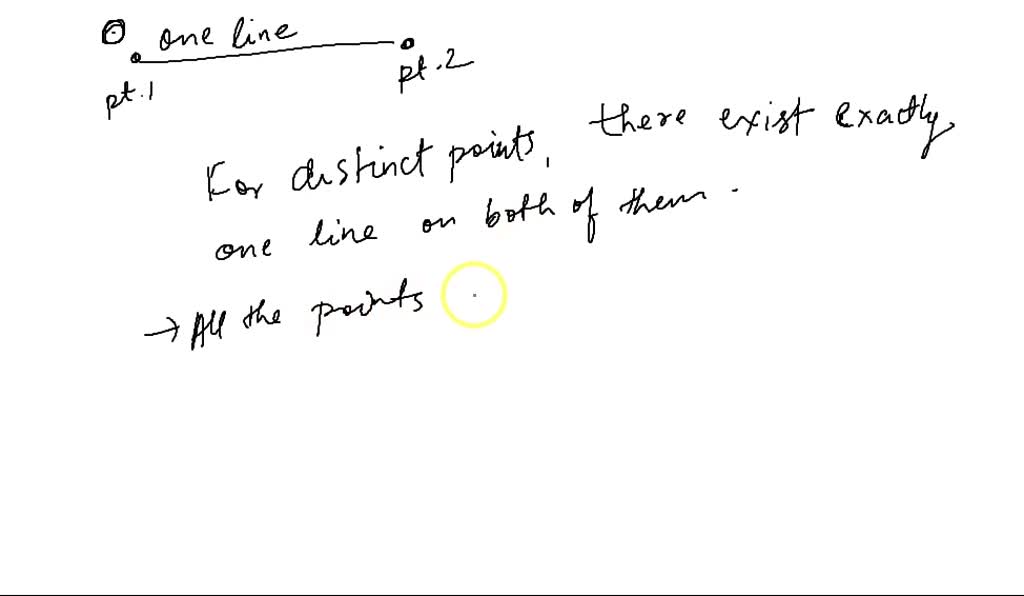 one line
pt.1
pt.2
For distinct points, there exist exactly
one line on both of them.
→ All the points